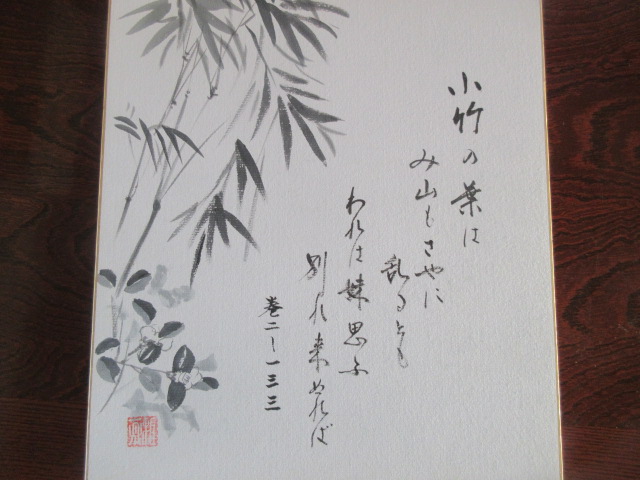 小竹の葉は
み山もさやに
乱るとも
われは妹思ふ
別れ来ぬれば
巻二ー一三三